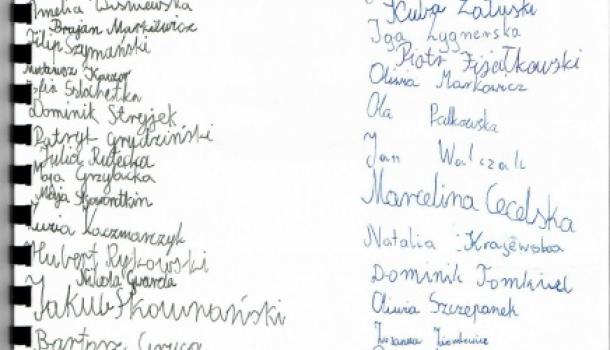 Amelia Wiśniewska
Brajan Markiewicz
Filip Szymański
Mateusz
Zofia Szlachetka
Dominik Stryjek
Patryk Grudziński
Julia Rutecka
Maja Grzybacka
Maja
Zuzia Kaczmarczyk
Hubert Rykowski
Nikola Gwarda
Jakub Skownański
Bartosz
Kuba Załuski
Iga Zygnerska
Piotr Fijałkowski
Oliwia Markowicz
Ola Pałkowska
Jan Walczak
Marcelina Cecelska
Natalia Krajewska
Dominik Tomkiel
Oliwia Szczepanek
Zuzanna